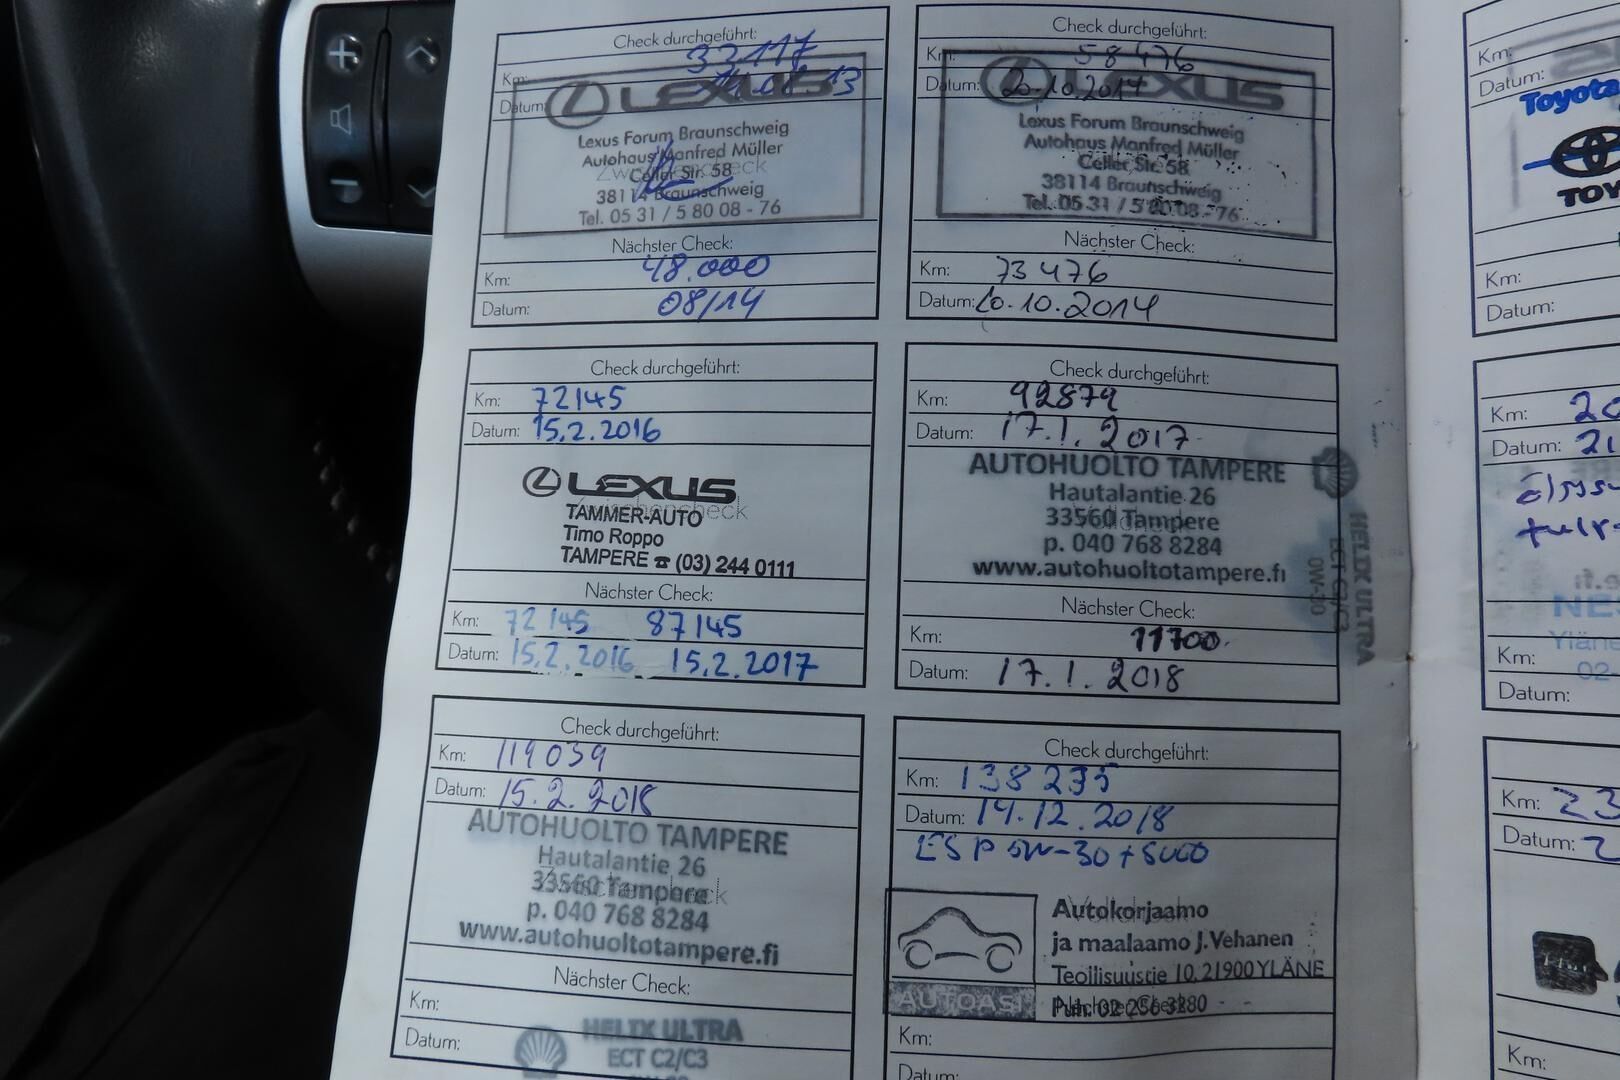 Check durchgeführt:
Km: 33117
Datum: 13
LEXUS
Lexus Forum Braunschweig
Autohaus Manfred Müller
Celler Str. 58
38114 Braunschweig
Tel. 05 31 / 5 80 08 - 76
Nächster Check:
Km: 48.000
Datum: 08/14
Check durchgeführt:
Km: 58476
Datum: 20.10.2014
LEXUS
Lexus Forum Braunschweig
Autohaus Manfred Müller
Celler Str. 58
38114 Braunschweig
Tel. 05 31 / 5 80 08 - 76
Nächster Check:
Km: 73476
Datum: 20.10.2014
Check durchgeführt:
Km: 72145
Datum: 15.2.2016
LEXUS
Zwischencheck
TAMMER-AUTO
Timo Roppo
TAMPERE ☎ (03) 244 0111
Nächster Check:
Km: 72145 87145
Datum: 15.2.2016 15.2.2017
Check durchgeführt:
Km: 92879
Datum: 17.1.2017
AUTOHUOLTO TAMPERE
Hautalantie 26
33560 Tampere
p. 040 768 8284
www.autohuoltotampere.fi
Nächster Check:
Km: 11700
Datum: 17.1.2018
HELIX ULTRA
ECT C2/C3
0W-30
Check durchgeführt:
Km: 119039
Datum: 15.2.2018
AUTOHUOLTO TAMPERE
Hautalantie 26
33560 Tampere
Zwischencheck
p. 040 768 8284
www.autohuoltotampere.fi
Nächster Check:
Km:
Datum:
HELIX ULTRA
ECT C2/C3
Check durchgeführt:
Km: 138235
Datum: 14.12.2018
ESP 5W-30 +
Autokorjaamo
ja maalaamo J.Vehanen
Teollisuustie 10, 21900 YLÄNE
AUTOASI
Puh. 02 256 3280
Nächster Check:
Km:
Datum:
Km:
Datum:
Toyota
TOY
Km:
Datum:
Km: 20
Datum: 21
NE
Yläne
02-
Km:
Datum:
Km: 23
Datum: 2
Km: